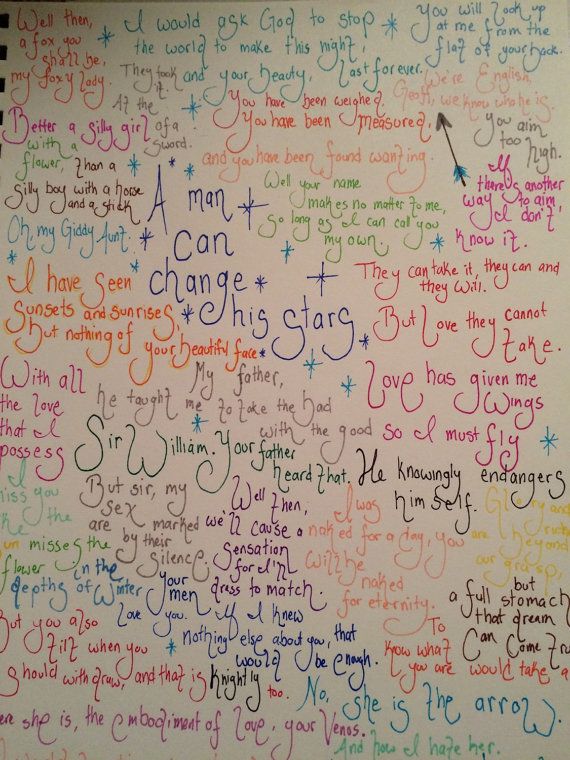 Well then,
a fox you
shall be,
my foxy lady.
I would ask God to stop
the world to make this night,
and your beauty, last forever.
You will look up
at me from the
flat of your back.
They took
it.
At the
of a
sword.
You have been weighed.
You have been measured,
and you have been found wanting.
We're English,
Geoff, we know who he is.
You aim
too
high.
If
there's another
way to aim,
I don't
know it.
Better a silly girl
with a
flower, than a
silly boy with a horse
and a stick
Oh my Giddy Aunt.
A man
can
change
his stars.
Well your name
makes no matter to me,
so long as I can call you
my own.
They can take it, they can and
they will.
But love they cannot
take.
I have seen
sunsets and sunrises,
but nothing of your beautiful face
My father,
he taught me to take the bad
with the good
Love has given me
wings
so I must fly
With all
the love
that I
possess
I
miss you
like the
sun misses the
flower in the
depths of winter
Sir William. Your father
heard that.
He knowingly endangers
himself.
But sir, my
sex
are marked
by their
silence.
Well then,
we'll cause a
sensation
for I'll
dress to match.
I was
naked for a day, you
will be
naked
for eternity.
Glory and
riches
are beyond
our grasp,
but
a full stomach
that dream
Can Come true
your
men
love you. If I knew
nothing else about you, that
would be enough.
But you also
tilt when you
should withdraw, and that is
Knightly
too.
To
know what
you are would take a
No, she is the arrow.
here she is, the embodiment of love, your Venus.
And how I hate her.